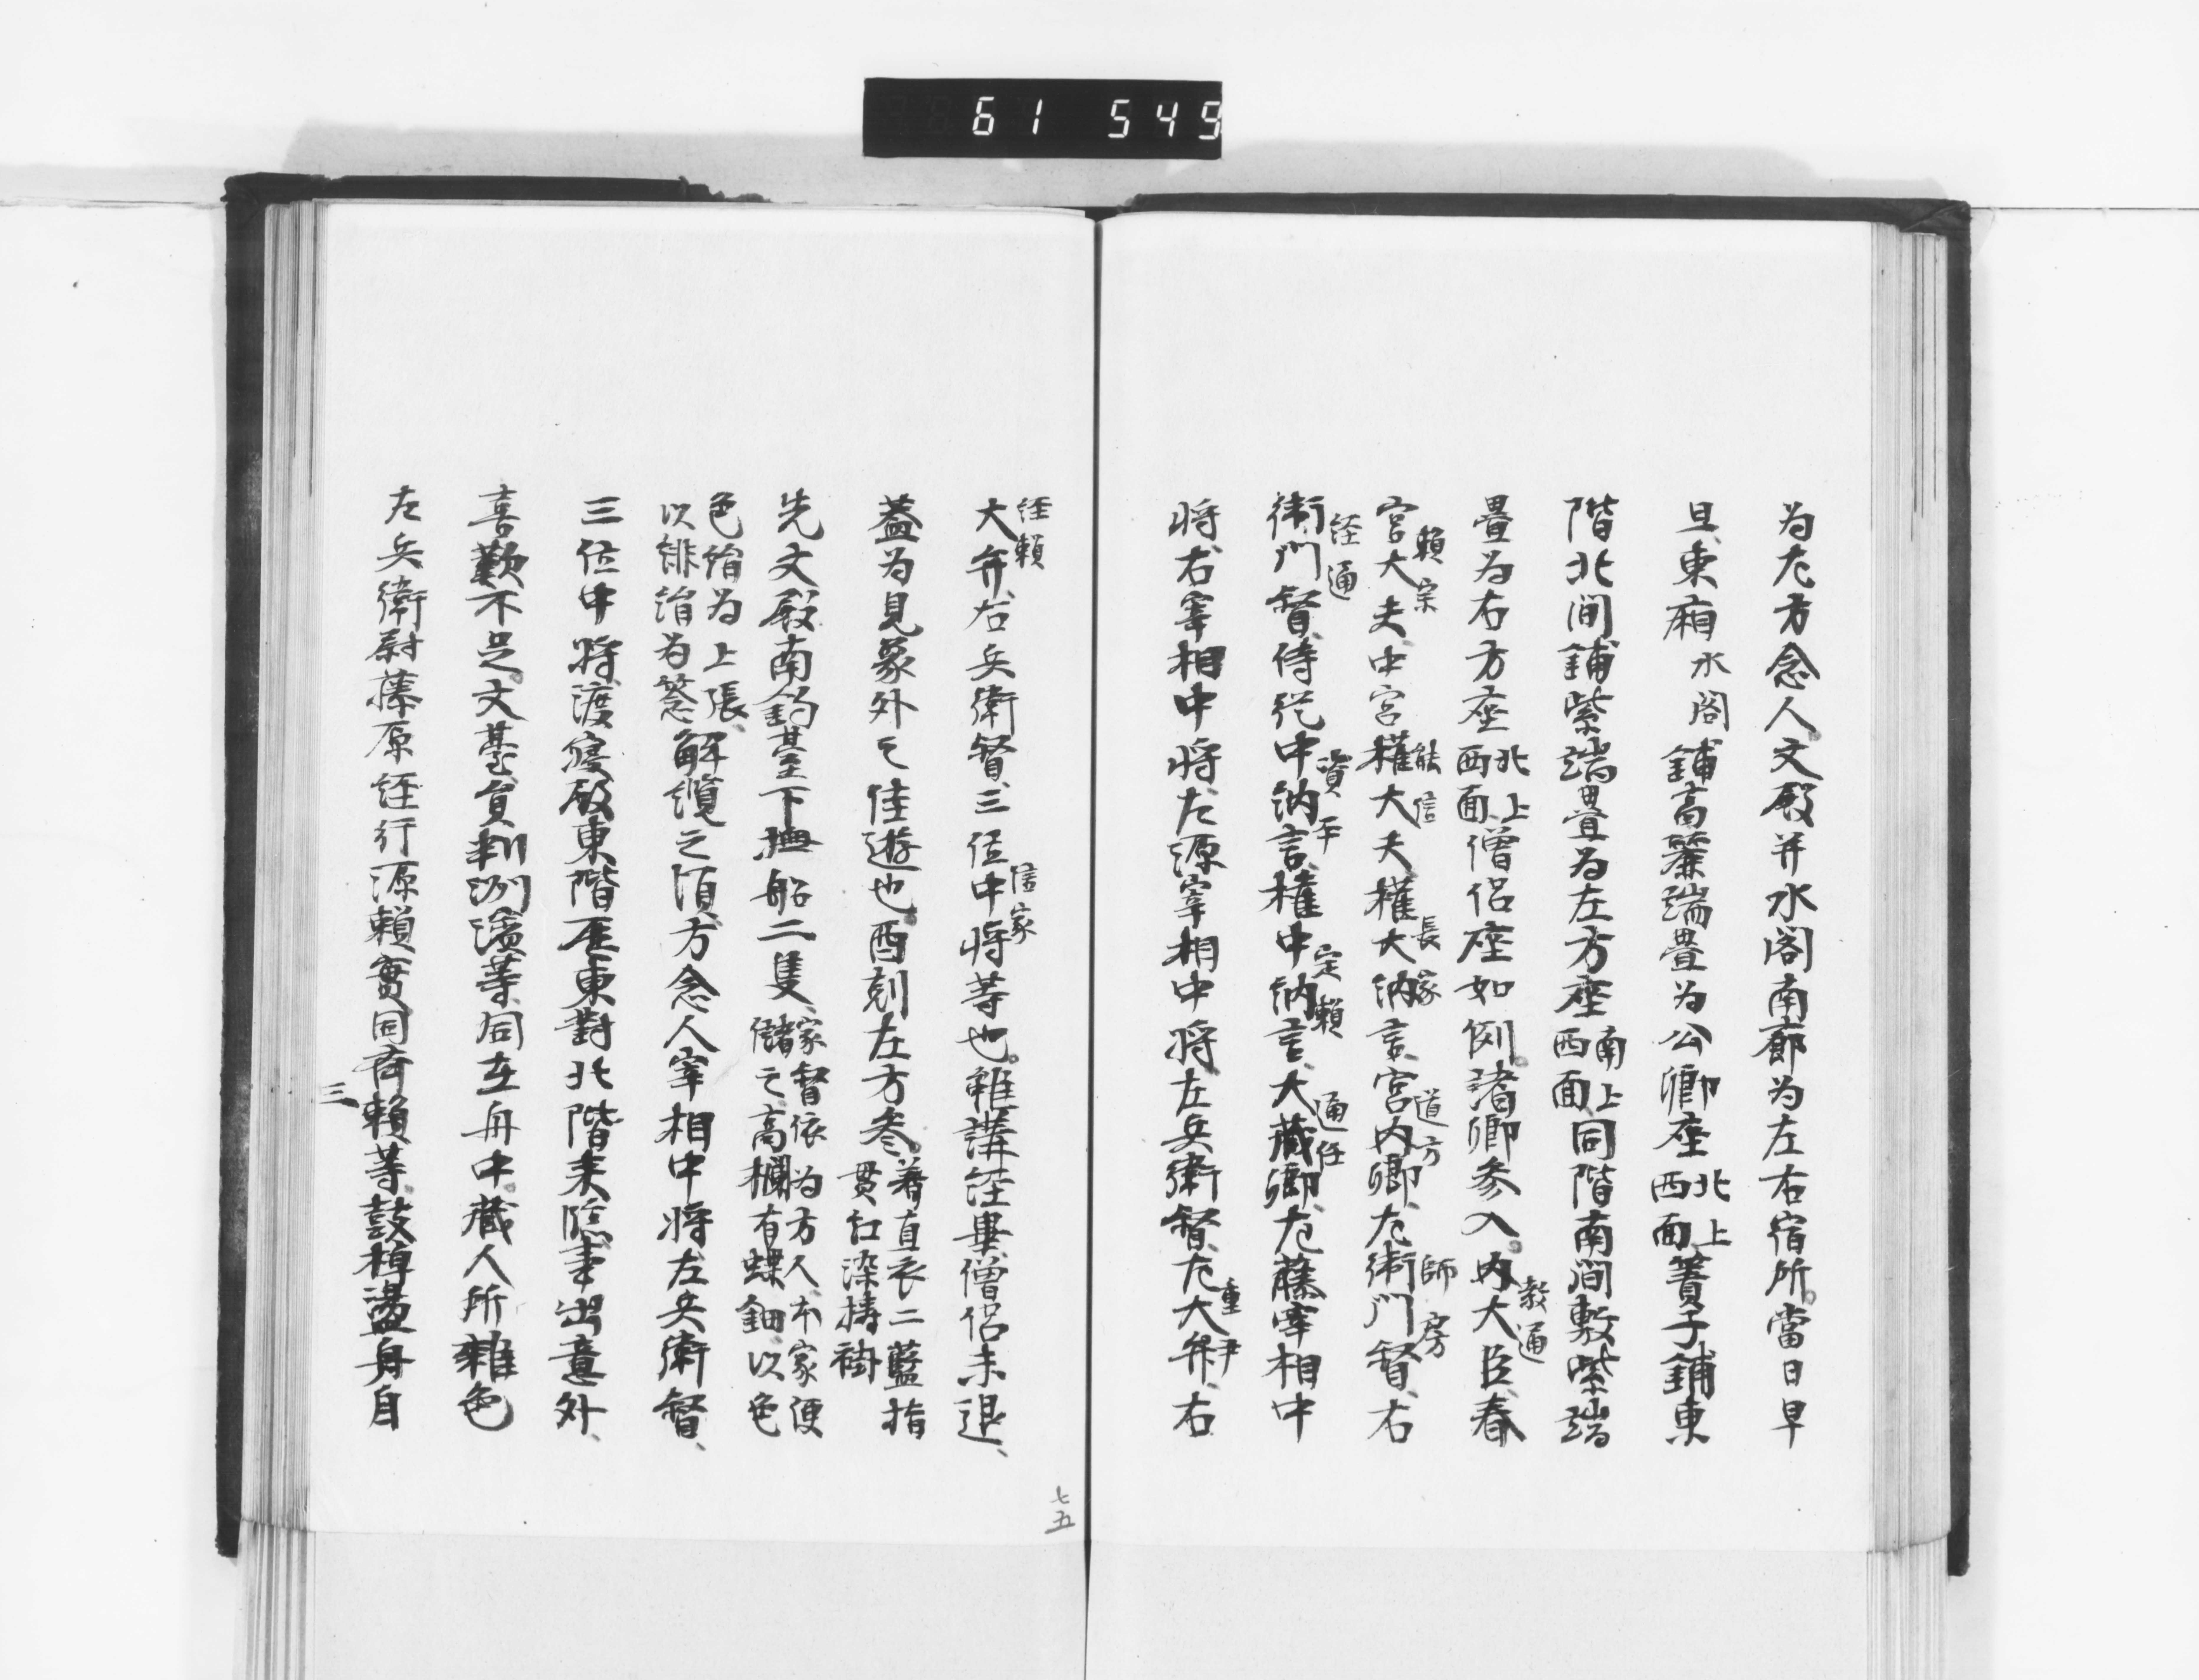 61 549
為左方念人、文殿并水閣南廊為左右宿所。當日早
旦、東廂水閣鋪高麗端畳為公卿座北上西面、簀子鋪東
階北間鋪紫端畳為左方座南上西面、同階南間敷紫端
畳為右方座北上西面、僧侶座如例。諸卿参入。内大臣、教通春
宮大夫、頼宗中宮権大夫、能信権大納言、長家宮内卿、道方左衛門督、師房右
衛門督、経通侍従中納言、資平権中納言、定頼大蔵卿、通任左藤宰相中
将、右宰相中将、左源宰相中将、左兵衛督、左大弁、重尹右
大弁、経頼右兵衛督、三位中将等也。信家雖講経畢、僧侶未退、
蓋為見象外之佳遊也。酉刻左方参。着直衣二藍指貫紅染擣褂
先文殿南釣臺下艤船二隻、家督依為方人、本家便儲之、高欄有蝶鈿、以色
色綸為上張、以緋綸為簦、解纜之頃、方念人宰相中将、左兵衛督、
三位中将、渡寝殿東階歴東對北階来臨、事出意外、
喜歎不足。文臺員判洲濱等、同在舟中。蔵人所雑色
左兵衛尉藤原経行源頼實、同斉頼等、鼓棹盪舟自
三
七五